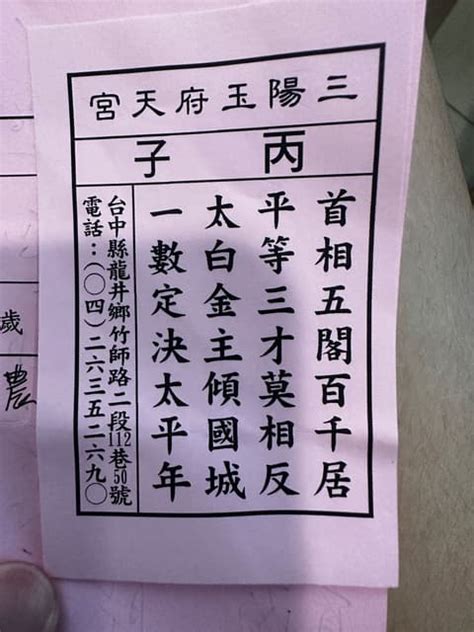 三陽玉府天宮
丙子
首相五閣百千居
平等三才莫相反
太白金主傾國城
一數定決太平年
台中縣龍井鄉竹師路二段112巷50號
電話：（〇四）二六三五二六九〇
歲
農